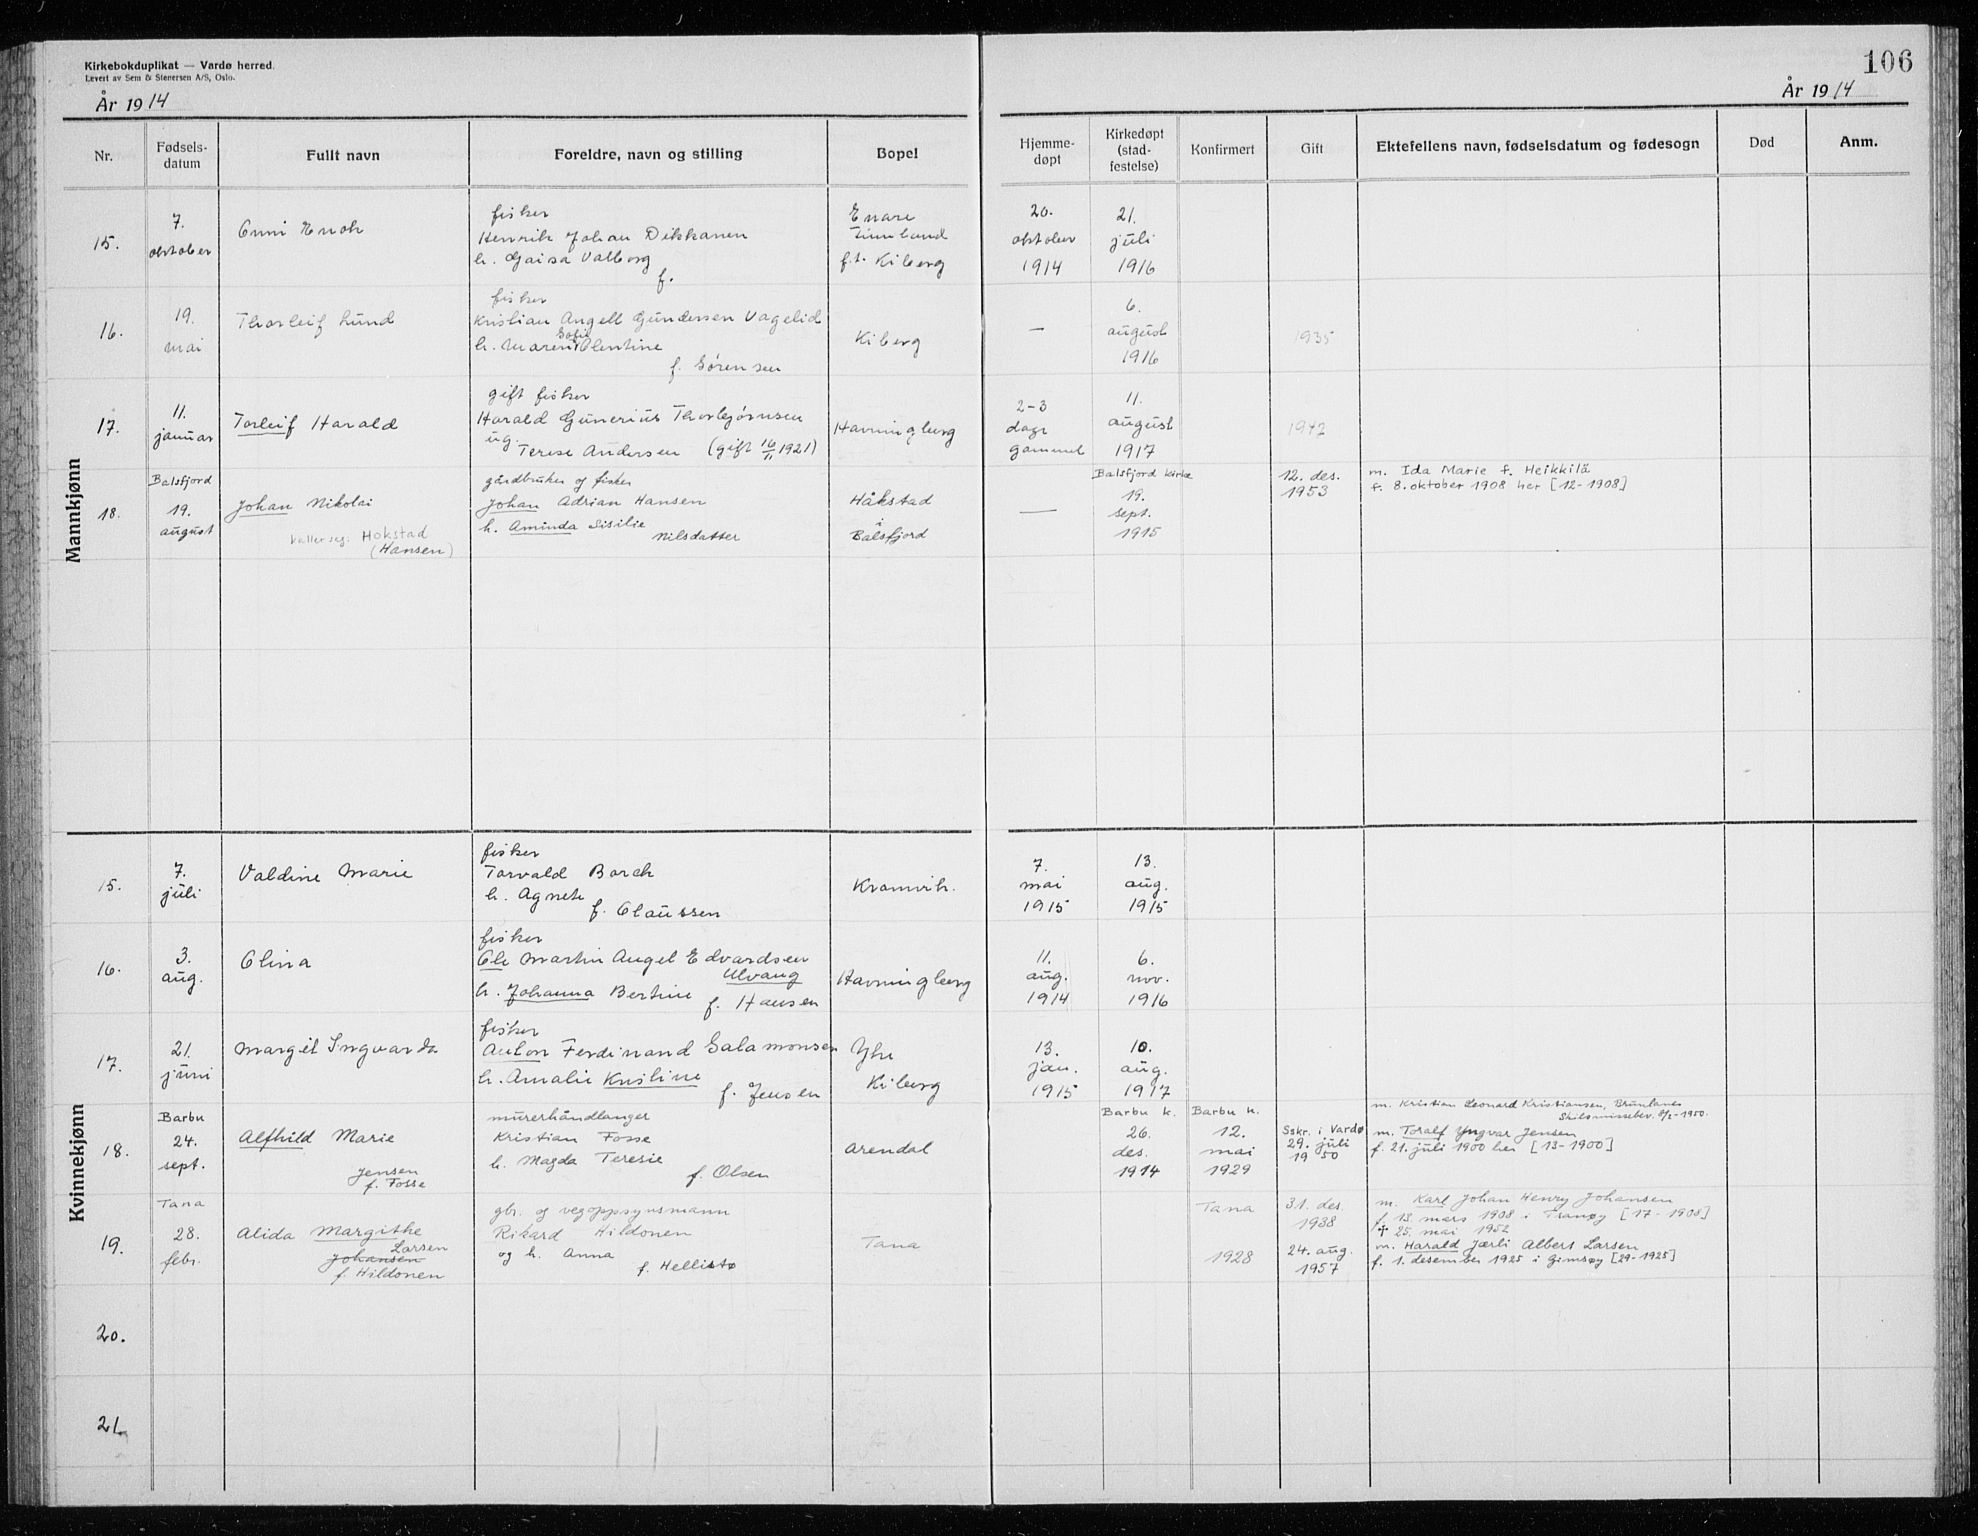 Kirkebokduplikat — Vardø herred.
Levert av Sem & Stenersen A/S, Oslo.
106
År 1914
År 1914
Nr.
Fødsels-
datum
Fullt navn
Foreldre, navn og stilling
Bopel
Hjemme-
døpt
Kirkedøpt
(stad-
festelse)
Konfirmert
Gift
Ektefellens navn, fødselsdatum og fødesogn
Død
Anm.
Mannkjønn
15.
7.
oktober
Onni Enok
fisker
Henrik Johan Dikkanen
h. Gaisa Valborg
f.
Enare
Finnland
f.t. Kiberg
20.
oktober
1914
21.
juli
1916
16.
19.
mai
Thorleif Lund
fisker
Kristian Angell Gundersen Vagelid
Sofie
h. Maren Olentine
f. Sørensen
Kiberg
—
6.
august
1916
1935
17.
11.
januar
Torleif Harald
gift fisker
Harald Gunerius Thorbjørnsen
ug.
Terese Andersen (gift 16/11 1921)
Havningberg
2-3
dage
gammel
11.
august
1917
1942
18.
Balsfjord
19.
august
Johan Nikolai
kaller seg: Hokstad
(Hansen)
gårdbruker og fisker
Johan Adrian Hansen
h. Aminda Sisilie
Nilsdatter
Håkstad
i
Balsfjord
—
Balsfjord kirke
19.
sept.
1915
12. des.
1953
m. Ida Marie f. Heikkilä
f. 8. oktober 1908 her [12-1908]
Kvinnekjønn
15.
7.
juli
Valdine Marie
fisker
Torvald Borch
h. Agnete
f. Claussen
Kramvik.
7.
mai
1915
13.
aug.
1915
16.
3.
aug.
Olina
fisker
Ole Martin Angel Edvardsen
Ulvang
h. Johanna Bertine f. Hansen
Havningberg
11.
aug.
1914
6.
nov.
1916
17.
21.
juni
Margit Ingvarda
fisker
Anton Ferdinand Salamonsen
h. Amalie Kristine
f. Jensen
Ytre
Kiberg
13.
jan.
1915
10.
aug.
1917
18.
Barbu
24.
sept.
Alfhild Marie
Jensen
f. Fosse
murerhåndlanger
Kristian Fosse
h. Magda Teresie
f. Olsen
Arendal
Barbu k.
26.
des.
1914
Barbu k.
12.
mai
1929
Sskr. i Vardø
29. juli
1950
m. Kristian Leonard Kristiansen, Brunlanes
Skilsmissebev. 8/2-1950.
m. Toralf Yngvar Jensen
f. 21. juli 1900 her [13-1900]
19.
Tana
28.
febr.
Alida Margithe
Larsen
Johansen
f. Hildonen
gbr. og vegoppsynsmann
Rikard Hildonen
og h. Anna
f. Hellistø
Tana
Tana
1928
31. des.
1938
24. aug.
1957
m. Karl Johan Henry Johansen
f. 13. mars 1908 i Tranøy [17-1908]
✝ 25. mai 1952
m. Harald Jærli Albert Larsen
f. 1. desember 1925 i Gimsøy [29-1925]
20.
21.